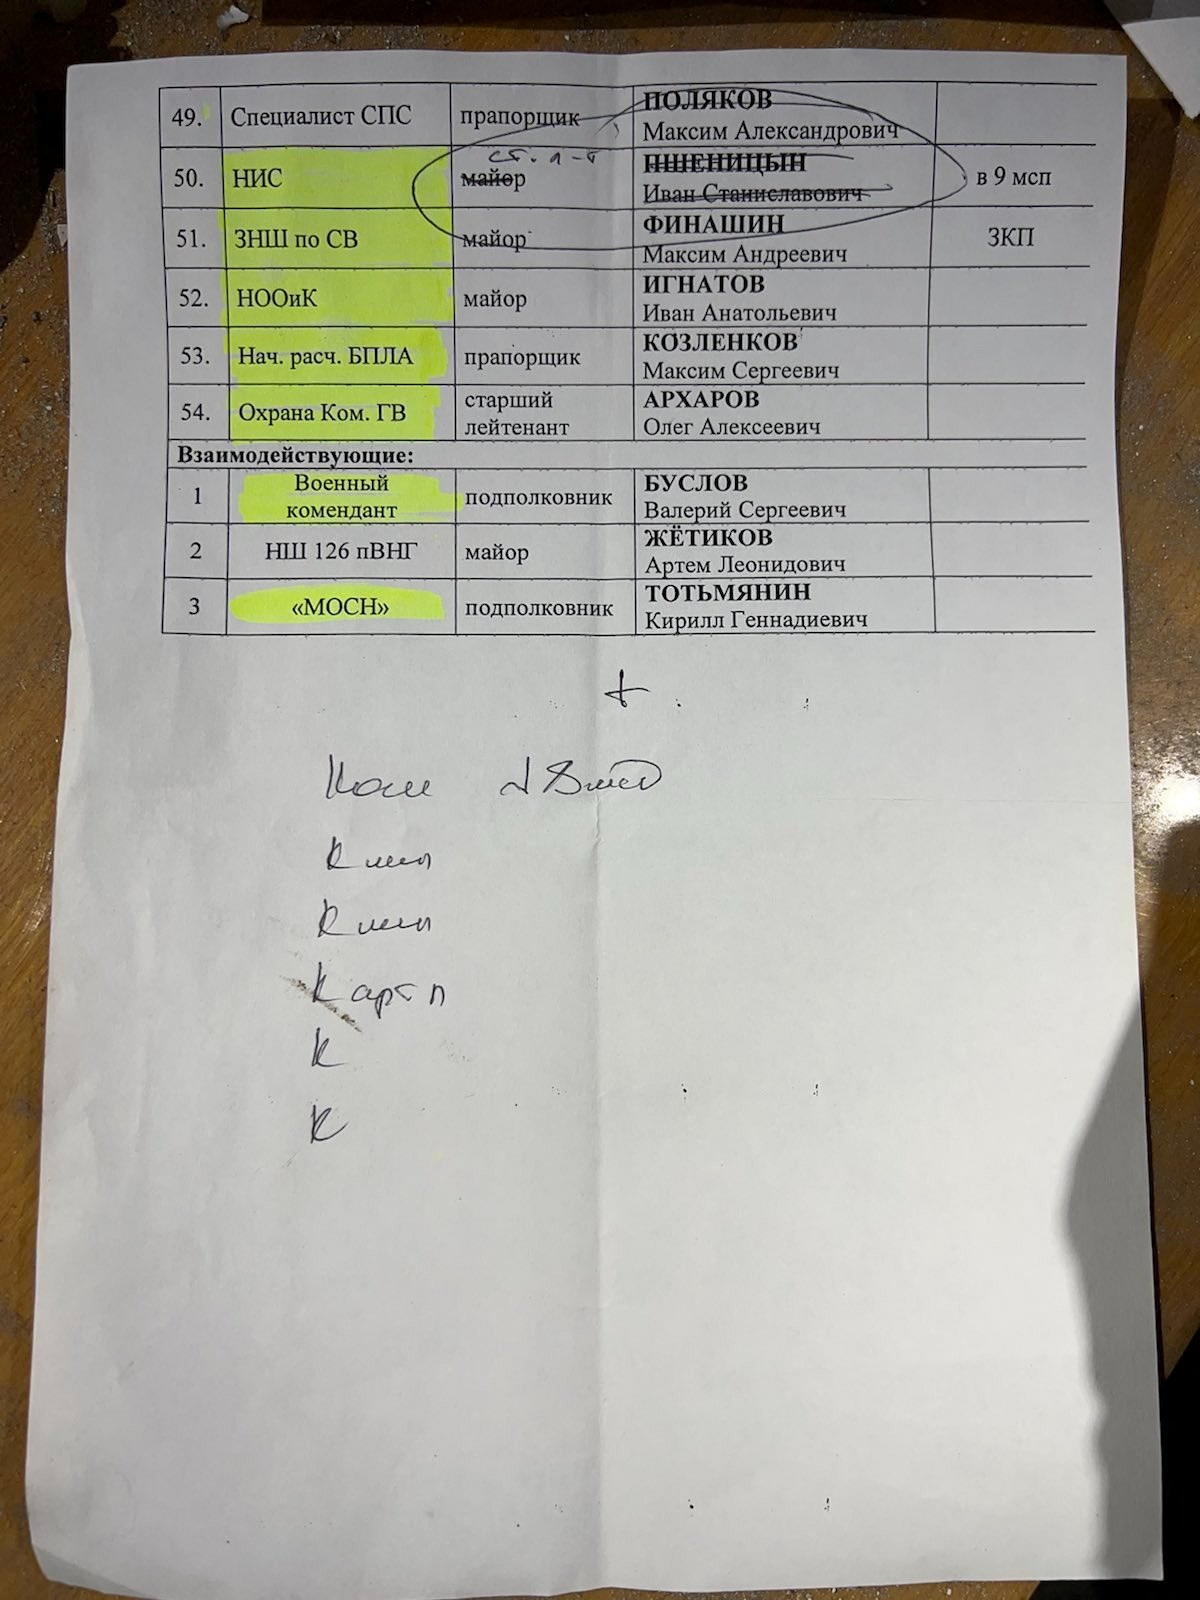 49. Специалист СПС прапорщик ПОЛЯКОВ
Максим Александрович
ст. л-т
50. НИС майор ПШЕНИЦЫН
Иван Станиславович в 9 мсп
51. ЗНШ по СВ майор ФИНАШИН
Максим Андреевич ЗКП
52. НООиК майор ИГНАТОВ
Иван Анатольевич
53. Нач. расч. БПЛА прапорщик КОЗЛЕНКОВ
Максим Сергеевич
54. Охрана Ком. ГВ старший АРХАРОВ
лейтенант Олег Алексеевич
Взаимодействующие:
1 Военный подполковник БУСЛОВ
комендант Валерий Сергеевич
2 НШ 126 пВНГ майор ЖЁТИКОВ
Артем Леонидович
3 «МОСН» подполковник ТОТЬМЯНИН
Кирилл Геннадиевич
+
К арт п
К
К